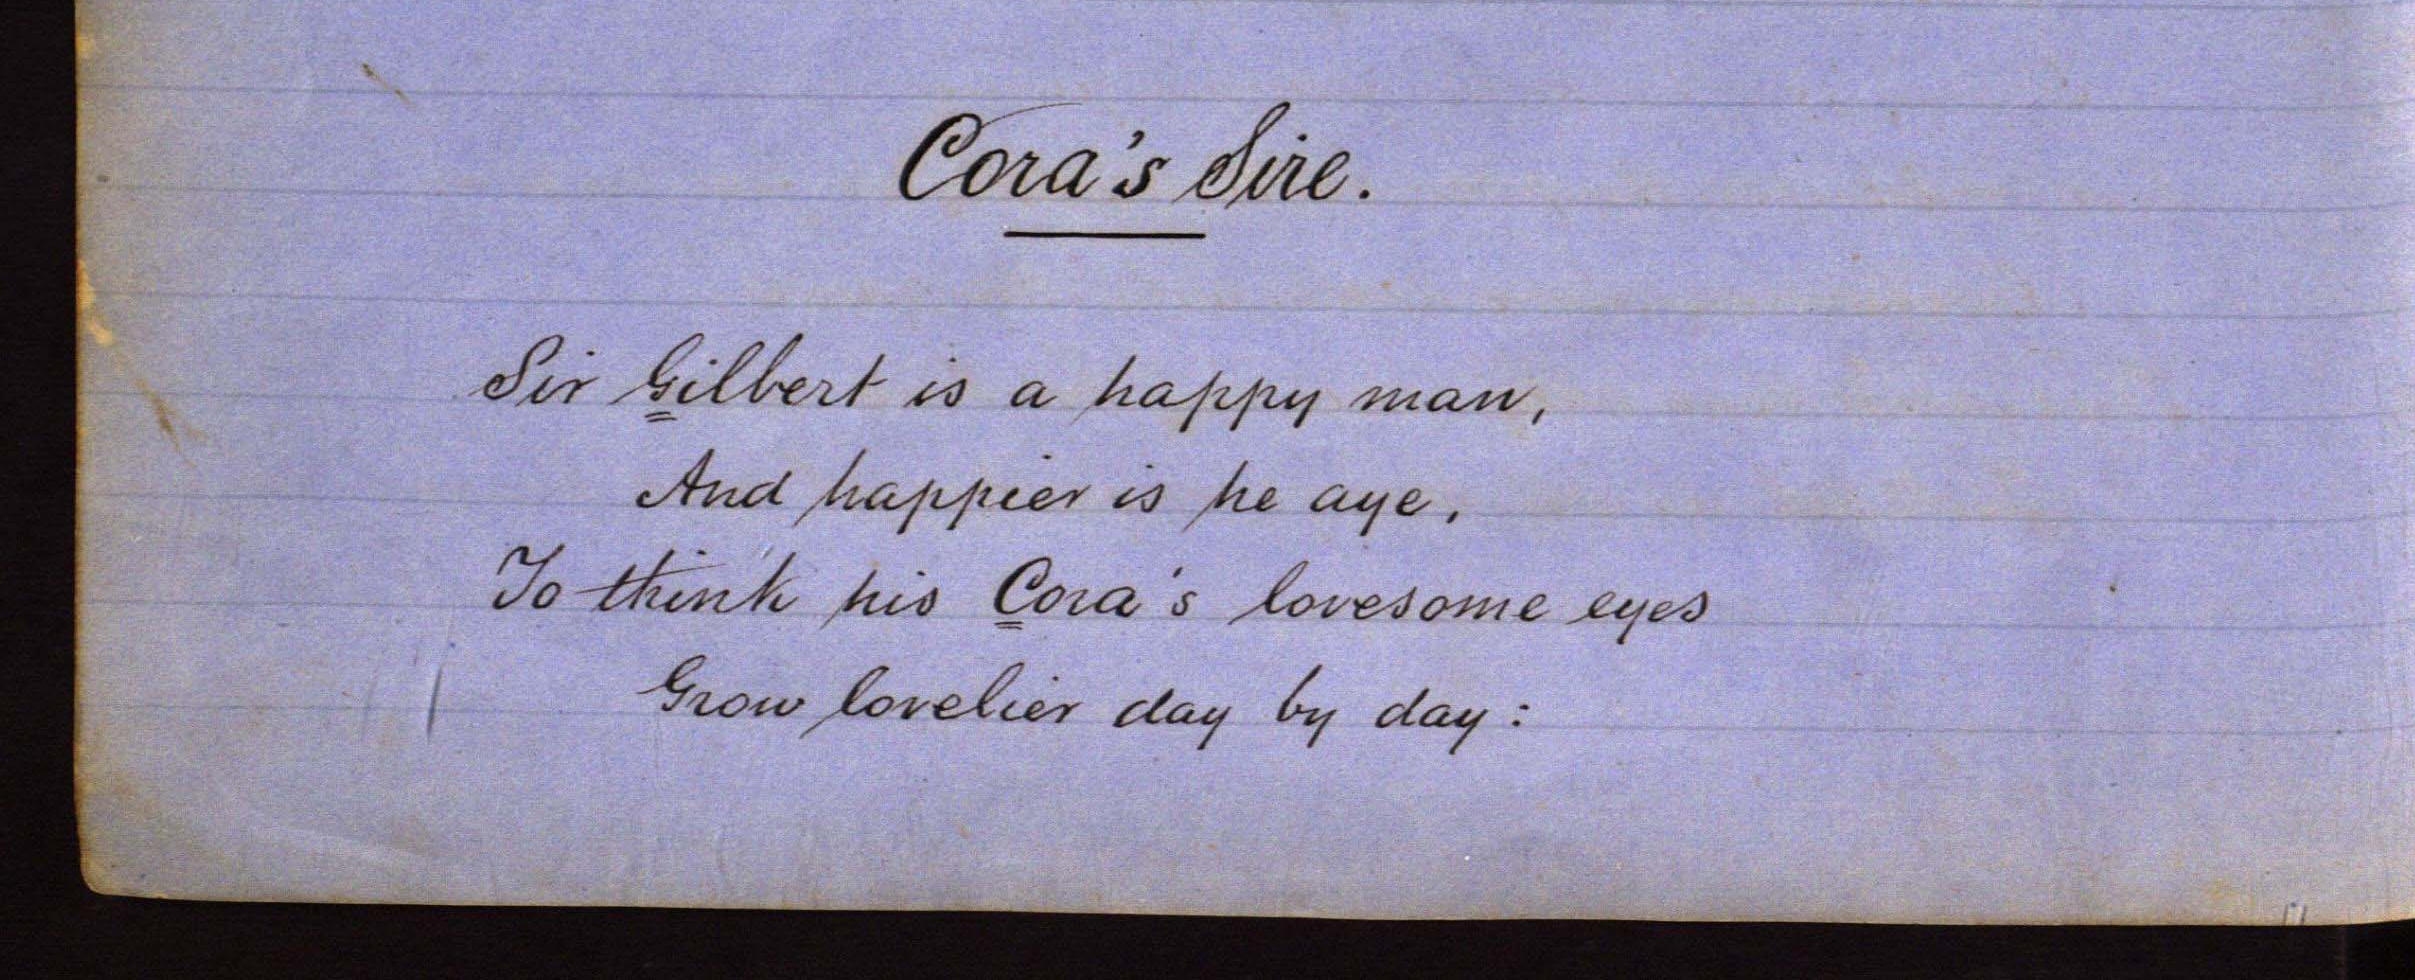 Cora's Sire.
Sir Gilbert is a happy man,
And happier is he aye,
To think his Cora's lovesome eyes
Grow lovelier day by day: